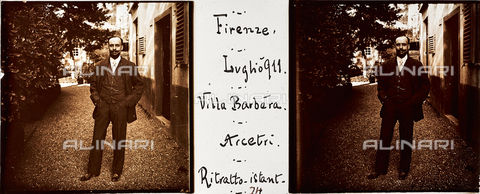 Firenze.
Luglio 911.
Villa Barbera.
Arcetri.
Ritratto istant.
74
ALINARI
ALINARI
ALINARI
ALINARI